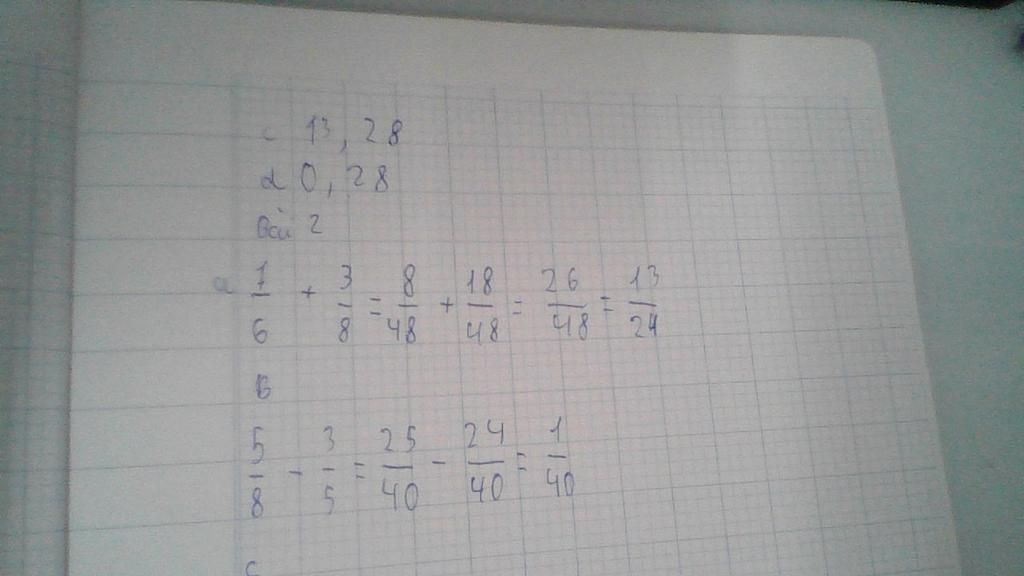 c 13,28
d 0,28
Bài 2
a 1/6 + 3/8 = 8/48 + 18/48 = 26/48 = 13/24
B
5/8 - 3/5 = 25/40 - 24/40 = 1/40
c